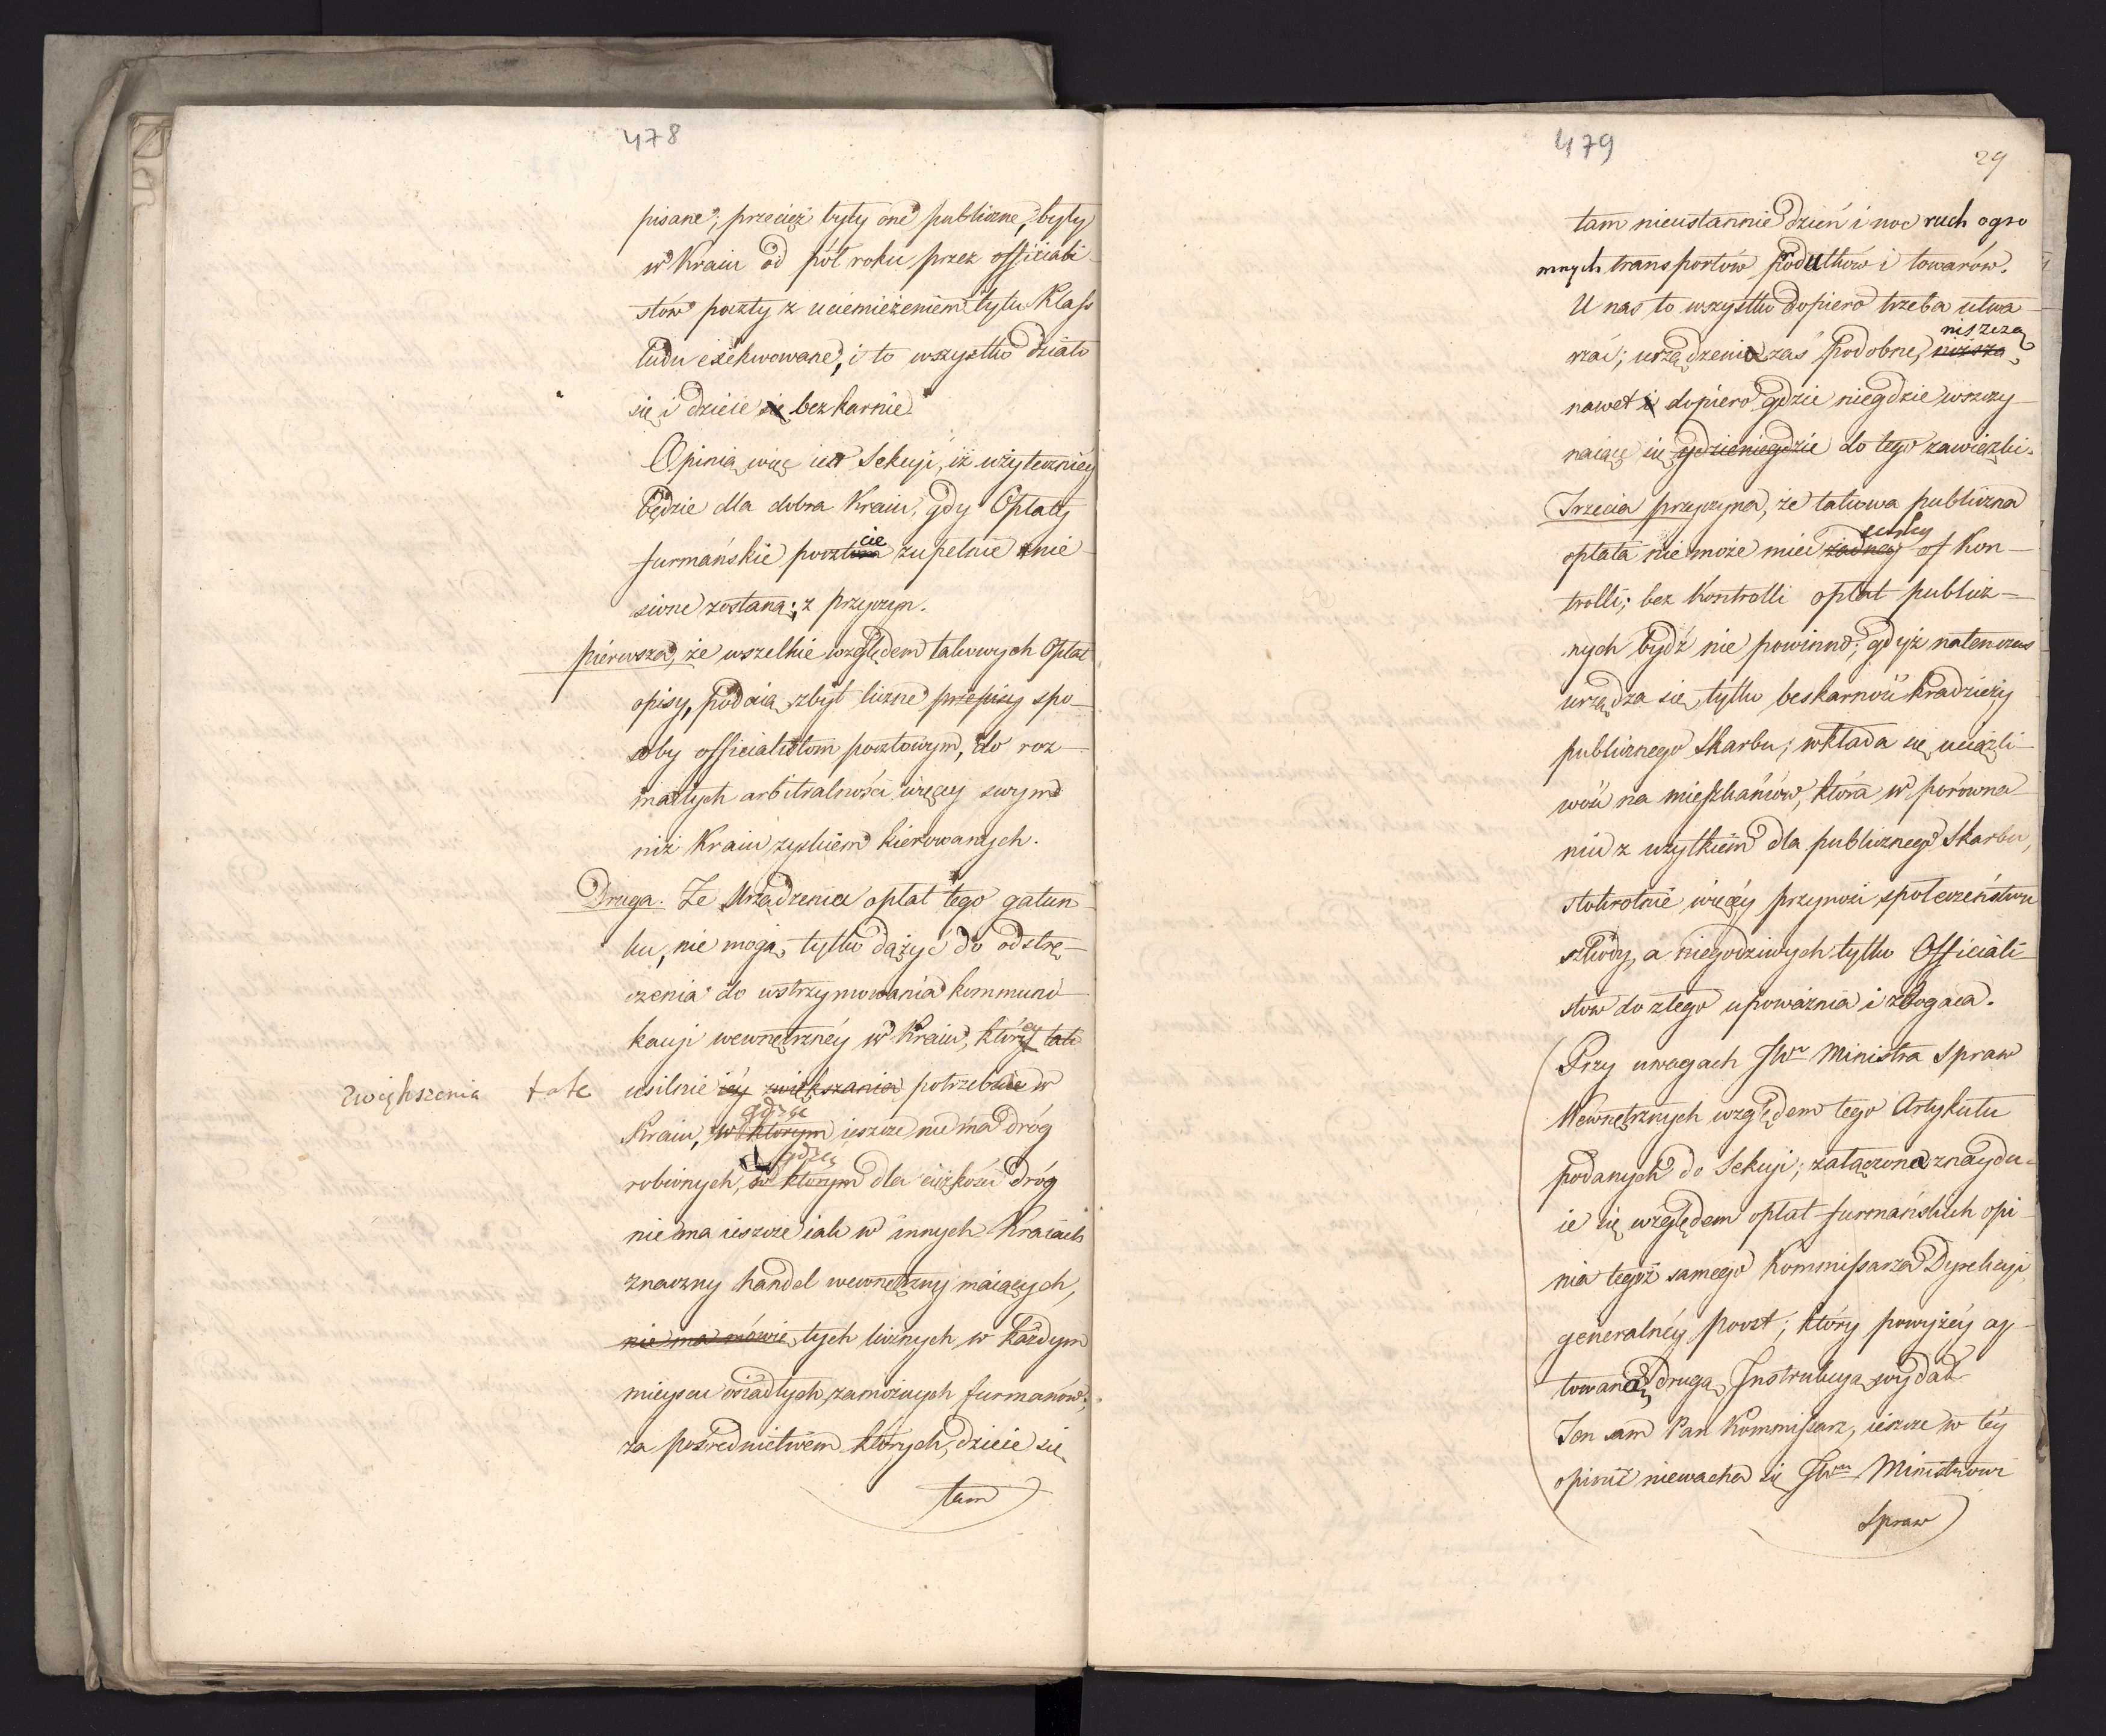 478
pisane; przecież były one publiczne, były
w Kraiu od pół roku przez officiali-
stów poczty z uciemiężeniem tylu Klass
ludu exekwowane, i to wszystko działo
się i dzieie się bezkarnie.
Opinią więc iest Sekcyi, iż użyteczniey
będzie dla dobra Kraiu, gdy Opłaty
cie
furmańskie poczto zupełnie znie-
sione zostaną; z przyczyn.
pierwsza, że wszelkie względem takowych Opłat
opisy, podaią zbyt liczne przepisy spo-
soby officialistom pocztowym, do roz-
maitych arbitralności więcey swym
niż Kraiu zyskiem kierowanych.
Druga. Że Urządzenia opłat tego gatun-
ku, nie mogą tylko dążyć do odstrę-
czenia do wstrzymowania kommuni-
kacyi wewnętrznéy w Kraiu, którey tak
zwiększenia tak usilnie iéy zwiększania potrzeba w
gdzie
Kraiu, w którym ieszcze nie ma dróg
a gdzie
robionych, w którym dla ciężkości dróg
nie ma ieszcze iak w innych Kraiach
znaczny handel wewnętrzny maiących,
nie ma mówię tych licznych w każdym
mieyscu osiadłych zamożnych furmanów;
za pośrednictwem których, dzieie się
tam
479
29
tam nieustannie dzień i noc ruch ogro
mnych transportów produktów i towarów.
U nas to wszystko dopiero trzeba utwa-
niszczą
rzać; urządzenia zaś podobne, niższą
nawet i dopiero gdzie niegdzie wszczy-
naiące się gdzieniegdzie do tego zawiązki.
Trzecia przyczyna, że takowa publiczna
opłata nie może mieć żadney of Kon-
trolli; bez Kontrolli opłat publicz-
nych bydź nie powinno; gdyż natenczas
urządza się tylko beskarność kradzieży
publicznego Skarbu; wkłada się uciążli-
wość na mieszkańców, która w porówna-
niu z użytkiem dla publicznego Skarbu,
stokrotnie więcéy przynosi społeczeństwu
szkody, a niegodziwych tylko Officiali-
stów do złego upoważnia i zbogaca.
Przy uwagach JWo Ministra Spraw
Wewnętrznych względem tego Artykułu
podanych do Sekcyi; załączona znaydu-
ie się względem opłat furmańskich opi-
nia tegoż samego Kommissarza Dyrekcyi
generalnéy poczt; który powyżéy cy-
towaną drugą Instrukcyą wydał.
Ten sam Pan Kommissarz, ieszcze w téy
opinii niewacha się JWmu Ministrowi
Spraw